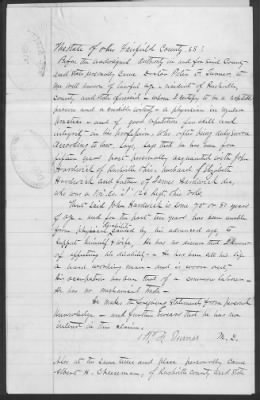 The State of Ohio Fairfield County SS:
Before the undersigned authority in and for said County
and State personally came Doctor Peter R. Turner, to
me well known of lawful age a resident of Rushville,
county and State aforesaid whom I certify to be a reputable
person and a credible witness - a physician in regular
practice - and of good reputation for skill and
integrity in his profession, who after being duly sworn
according to law, says, that he has been for
fifteen years past personally acquainted with John
Hardwick of Rushville Ohio, husband of Elizabeth
Hardwick and father of James Hardwick dec.
who was a in Co. Regt. Ohio Vols.
That said John Hardwick is some 80 or 81 years
of age - and for the past ten years has been unable
from physical debility caused by his advanced age, to
support himself & wife, He has no
of affecting his disability - He has been all his life
a hard working man - and is worn out,
His occupation has been that of a common laborer -
He has no mechanical trade -
He makes the foregoing statements from personal
knowledge - and further swears that he has no
interest in this claim;
Turner M.D.
Also at the same time and place personally came
H. Cheeseman, of Rushville county and State